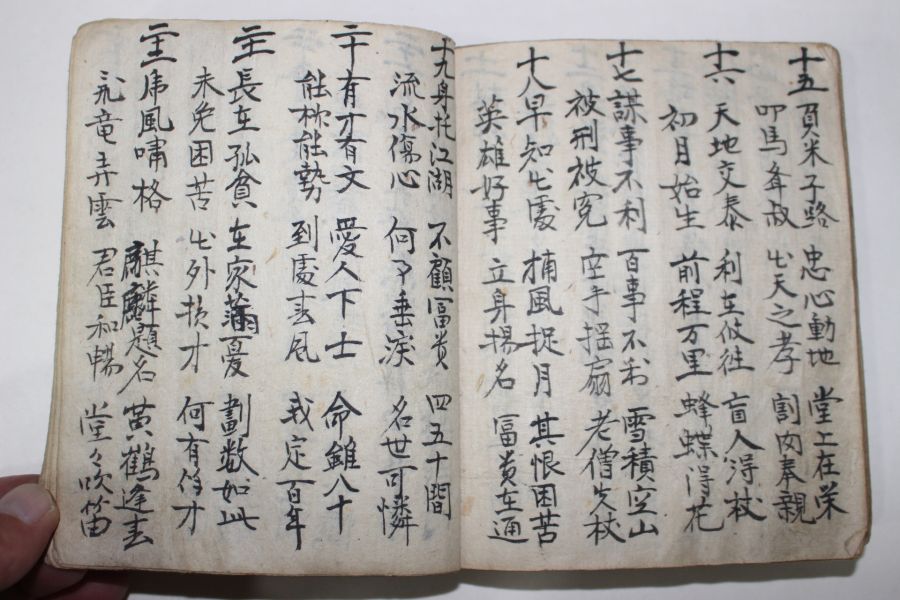 十五 負米子路 忠心動地 堂上在栄
叩馬 叔 出天之孝 割肉奉親
十六 天地交泰 利在攸往 盲人得杖
初月始生 前程万里 蜂蝶得花
十七 謀事不利 百事不利 雪積空山
被刑被寃 空手揺扇 老僧失杖
十八 早知出處 捕風捉月 其恨困苦
英雄好事 立身揚名 冨贵在通
十九 身托江湖 不顧冨贵 四五十間
流水傷心 何事垂淚 名世可憐
二十 有才有文 愛人下士 命雖八十
能称能勢 到處春風 我定百年
二十一 長在孤貧 在家 憂 劃数如此
未免困苦 出外損才 何有 才
二十二 虎風嘯格 麒麟題名 黄鶴逢春
竜弄雲 君臣和暢 堂々吹笛